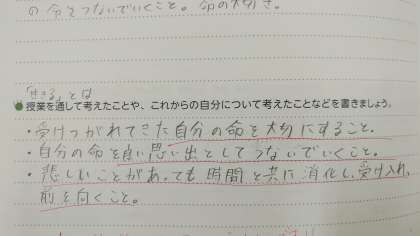 の命をつないでいくこと。命の大切さ。
「生きる」とは
授業を通して考えたことや、これからの自分について考えたことなどを書きましょう。
・受けつがれてきた自分の命を大切にすること。
・自分の命を良い思い出としてつないでいくこと。
・悲しいことがあっても時間と共に消化し、受け入れ、
前を向くこと。